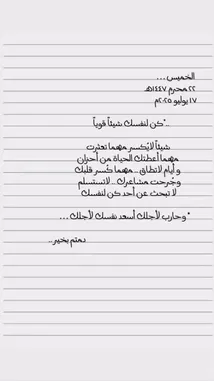 الخميس ...
٢٢ محرم ١٤٤٧هـ
١٧ يوليو ٢٠٢٥م
..."كن لنفسك شيئاً قوياً
شيئاً لايُكسر مهما تعثرت
مهما أعطتك الحياة من أحزان
و أيام لاتطاق .. مهما كُسر قلبك
وجُرحت مشاعرك .. لاتستسلم
لا تبحث عن أحد كن لنفسك
" وحارب لأجلك أسعد نفسك لأجلك ...
دمتم بخير ..